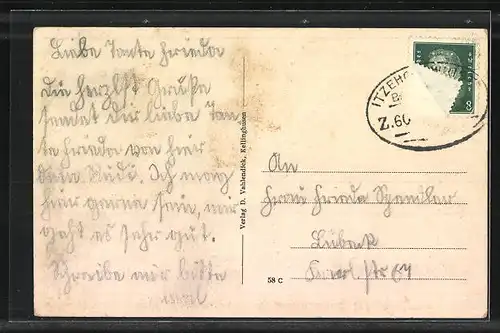 Liebe Tante Frieda
Die herzlichst Grüße
sendet Dir liebe Tan
te Frieda von hier
Dein Rudi. Ich mag
hier gerne sein, mir
geht es sehr gut.
Schreibe mir bitte
mal.
Verlag D. Vahlendick, Kellinghusen
58 C
ITZEHO
Z.60
8
An
Frau Frieda Spendler
Lübeck
str 64